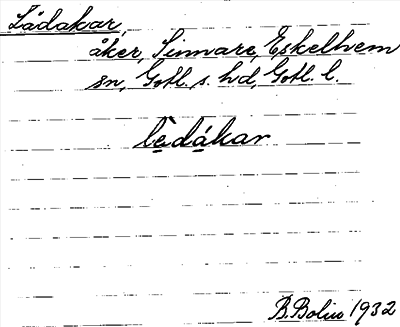 Lädakar,
åker, Sinnare, Eskelhem
sn, Gotl. s. hd, Gotl. l.
lèdákar
B. Bolin 1932